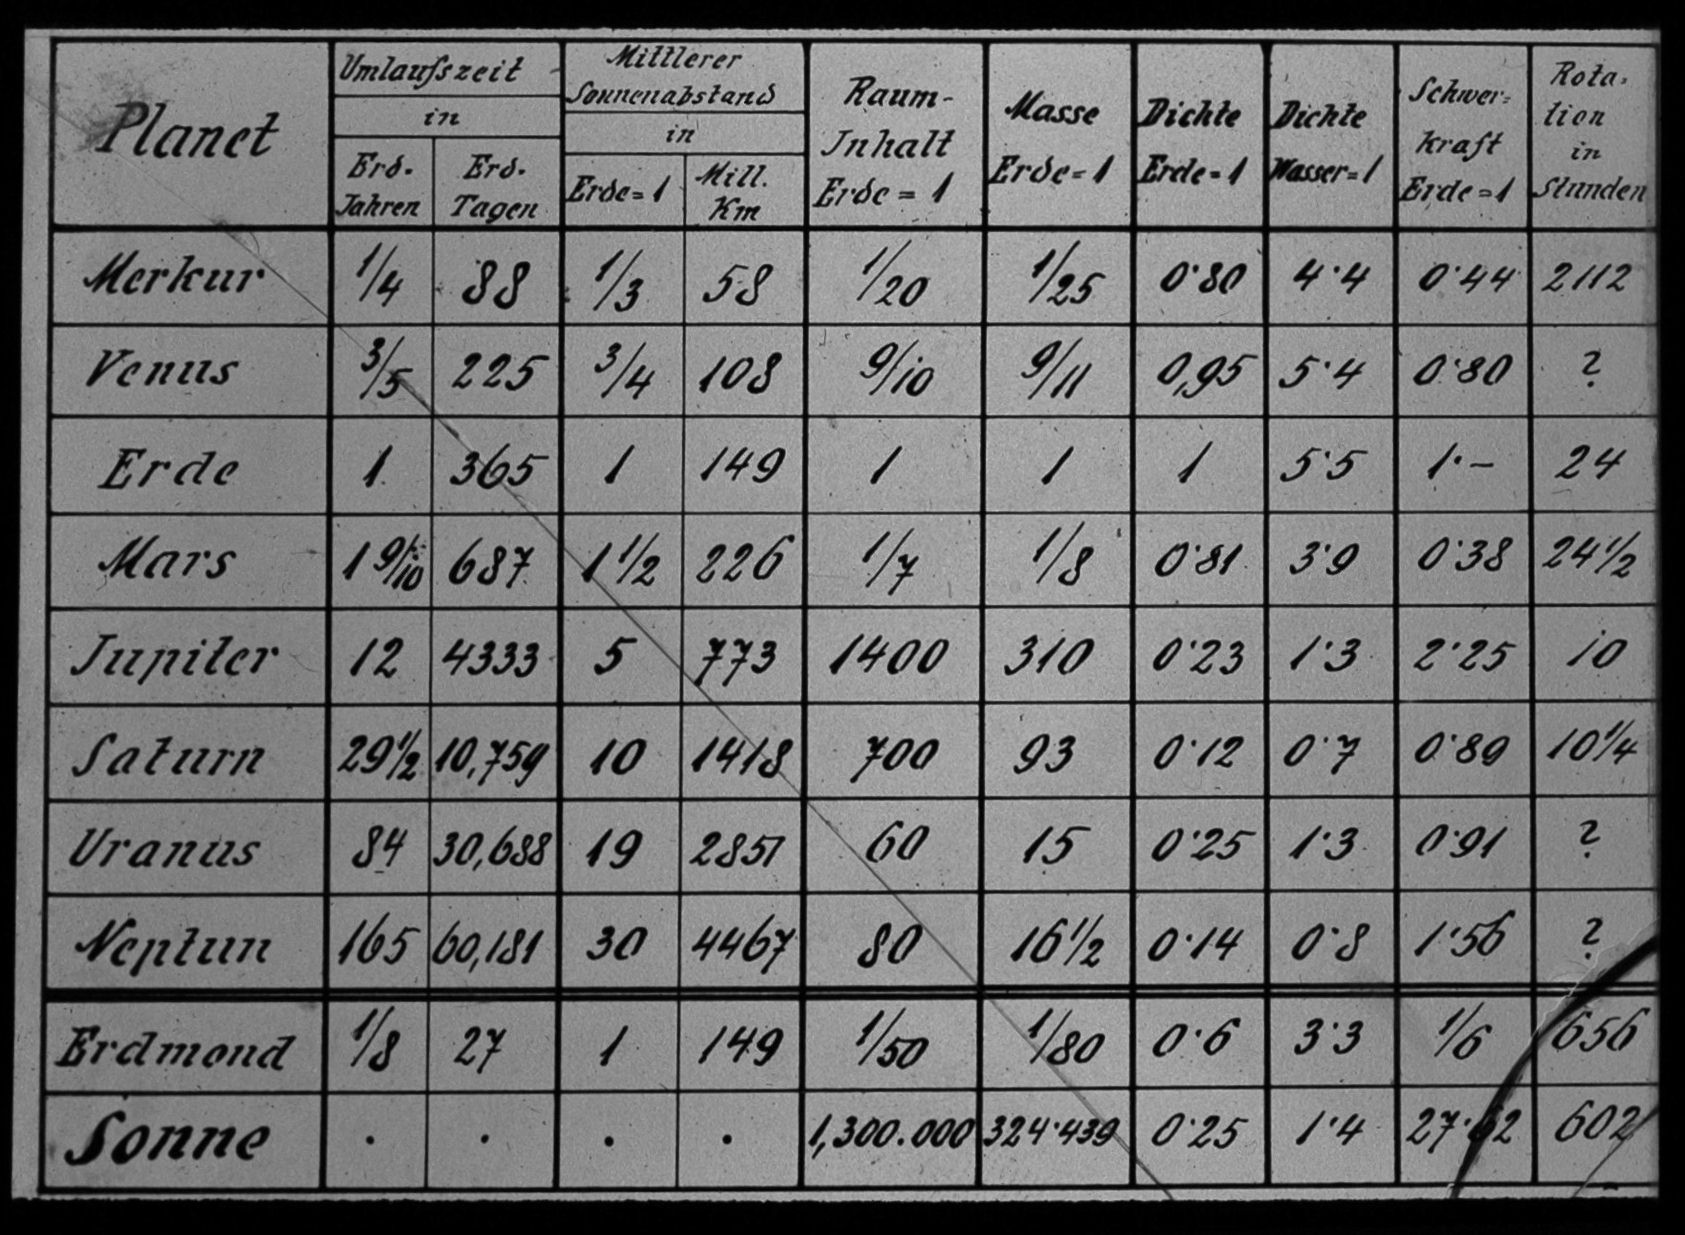 Planet
Umlaufszeit
in
Erd-
Jahren
Erd-
Tagen
Mittlerer
Sonnenabstand
in
Erde=1
Mill.
Km
Raum-
Inhalt
Erde = 1
Masse
Erde=1
Dichte
Erde=1
Dichte
Wasser=1
Schwer=
kraft
Erde=1
Rota=
tion
in
Stunden
Merkur 1/4 88 1/3 58 1/20 1/25 0·80 4·4 0·44 2112
Venus 3/5 225 3/4 108 9/10 9/11 0,95 5·4 0·80 ?
Erde 1 365 1 149 1 1 1 5·5 1·— 24
Mars 1 9/10 687 1 1/2 226 1/7 1/8 0·81 3·9 0·38 24 1/2
Jupiter 12 4333 5 773 1400 310 0·23 1·3 2·25 10
Saturn 29 1/2 10,759 10 1418 700 93 0·12 0·7 0·89 10 1/4
Uranus 84 30,688 19 2851 60 15 0·25 1·3 0·91 ?
Neptun 165 60,181 30 4467 80 16 1/2 0·14 0·8 1·56 ?
Erdmond 1/8 27 1 149 1/50 1/80 0·6 3·3 1/6 656
Sonne . . . . 1,300.000 324·439 0·25 1·4 27·62 602